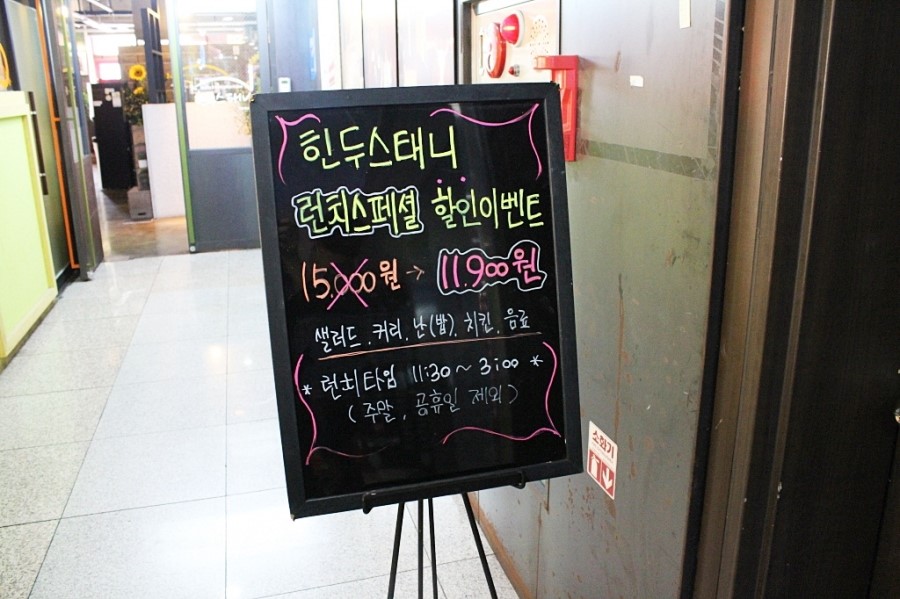 힌두스태니
런치스페셜 할인이벤트
15,000원 → 11.900원
샐러드. 커리. 난(밥). 치킨. 음료
* 런치타임 11:30 ~ 3:00 *
( 주말, 공휴일 제외 )
소화기